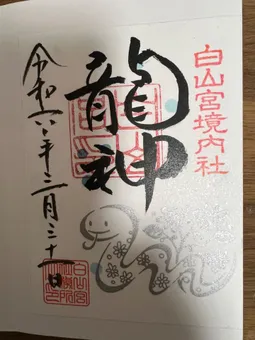 白山宮境内社
龍神
令和六年三月三十一日